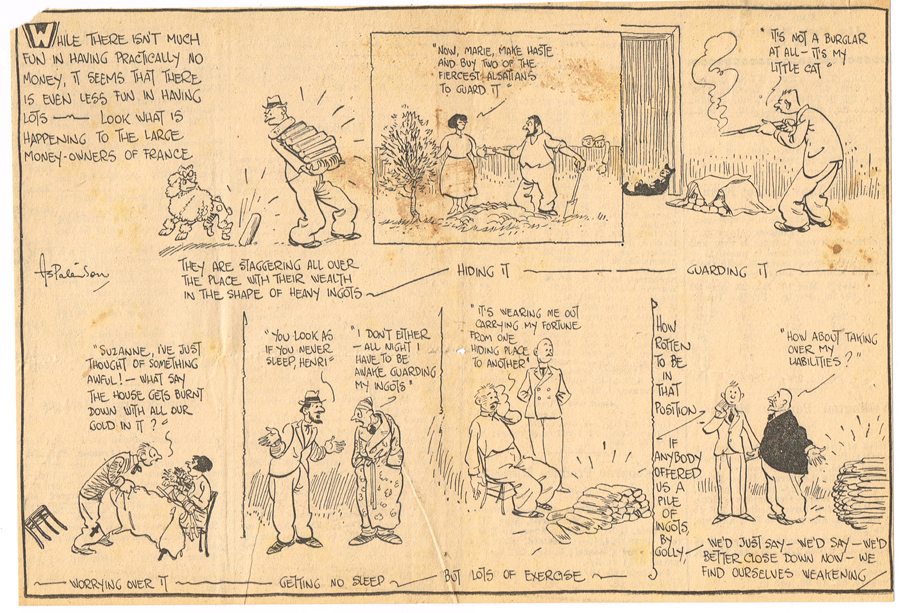 WHILE THERE ISN'T MUCH
FUN IN HAVING PRACTICALLY NO
MONEY, IT SEEMS THAT THERE
IS EVEN LESS FUN IN HAVING
LOTS — LOOK WHAT IS
HAPPENING TO THE LARGE
MONEY-OWNERS OF FRANCE
THEY ARE STAGGERING ALL OVER
THE PLACE WITH THEIR WEALTH
IN THE SHAPE OF HEAVY INGOTS
"NOW, MARIE, MAKE HASTE
AND BUY TWO OF THE
FIERCEST ALSATIANS
TO GUARD IT"
HIDING IT
"IT'S NOT A BURGLAR
AT ALL – IT'S MY
LITTLE CAT"
GUARDING IT
"SUZANNE, I'VE JUST
THOUGHT OF SOMETHING
AWFUL! – WHAT SAY
THE HOUSE GETS BURNT
DOWN WITH ALL OUR
GOLD IN IT?"
WORRYING OVER IT
"YOU LOOK AS
IF YOU NEVER
SLEEP, HENRI"
"I DON'T EITHER
– ALL NIGHT I
HAVE TO BE
AWAKE GUARDING
MY INGOTS"
GETTING NO SLEEP
"IT'S WEARING ME OUT
CARRYING MY FORTUNE
FROM ONE
HIDING PLACE
TO ANOTHER"
BUT LOTS OF EXERCISE
HOW
ROTTEN
TO BE
IN
THAT
POSITION
– IF
ANYBODY
OFFERED
US A
PILE
OF
INGOTS
BY
GOLLY
"HOW ABOUT TAKING
OVER MY
LIABILITIES?"
WE'D JUST SAY – WE'D SAY – WE'D
BETTER CLOSE DOWN NOW – WE
FIND OURSELVES WEAKENING